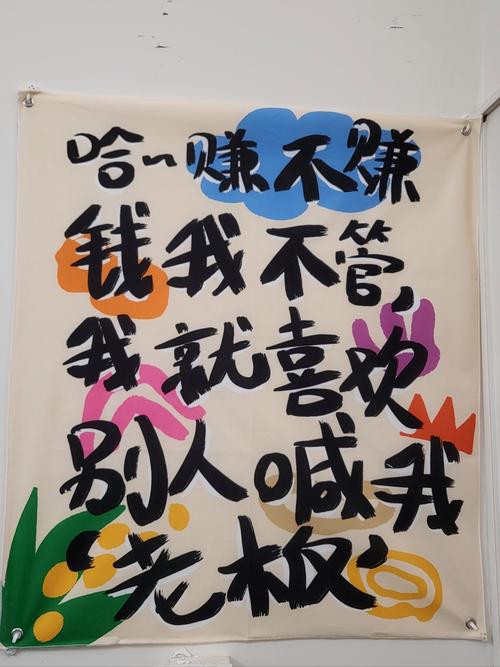 哈~赚不赚
钱我不管,
我就喜欢
别人喊我
‘老板’